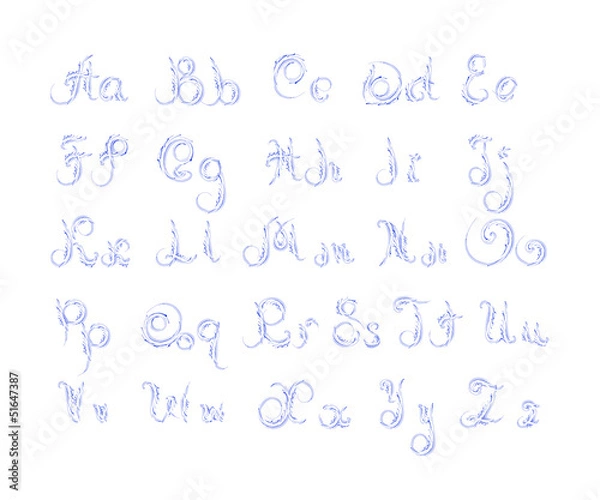 Aa Bb Cc Dd Ee
Ff Gg Hh Ii Jj
Kk Ll Mm Nn Oo
Pp Qq Rr Ss Tt Uu
Vv Ww Xx Yy Zz
Adobe Stock | #51647387